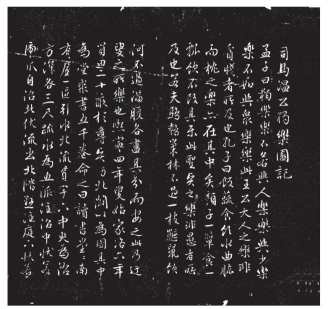 司馬溫公獨樂園記
孟子曰獨樂樂不若與人樂樂與少樂
樂不若與衆樂樂此王公大人之樂非
貧賤者所及也孔子曰飯蔬食飲水曲肱
而枕之樂亦在其中矣顏子一簞食一
瓢飲不改其樂此聖賢之樂非愚者所
及也若夫鷦鷯巢林不過一枝鼴鼠飲
河不過滿腹各盡其分而安之此乃迂
叟之所樂也熙寧四年叟始家洛六年
買田二十畝於尊賢坊北闢以為園其中
為堂聚書五千卷命之曰讀書堂堂南
有屋一區引水北流貫宇下中央為沼
方深各三尺疏水為五派注沼中狀若
虎爪自沼北伏流出北階懸注庭下狀若